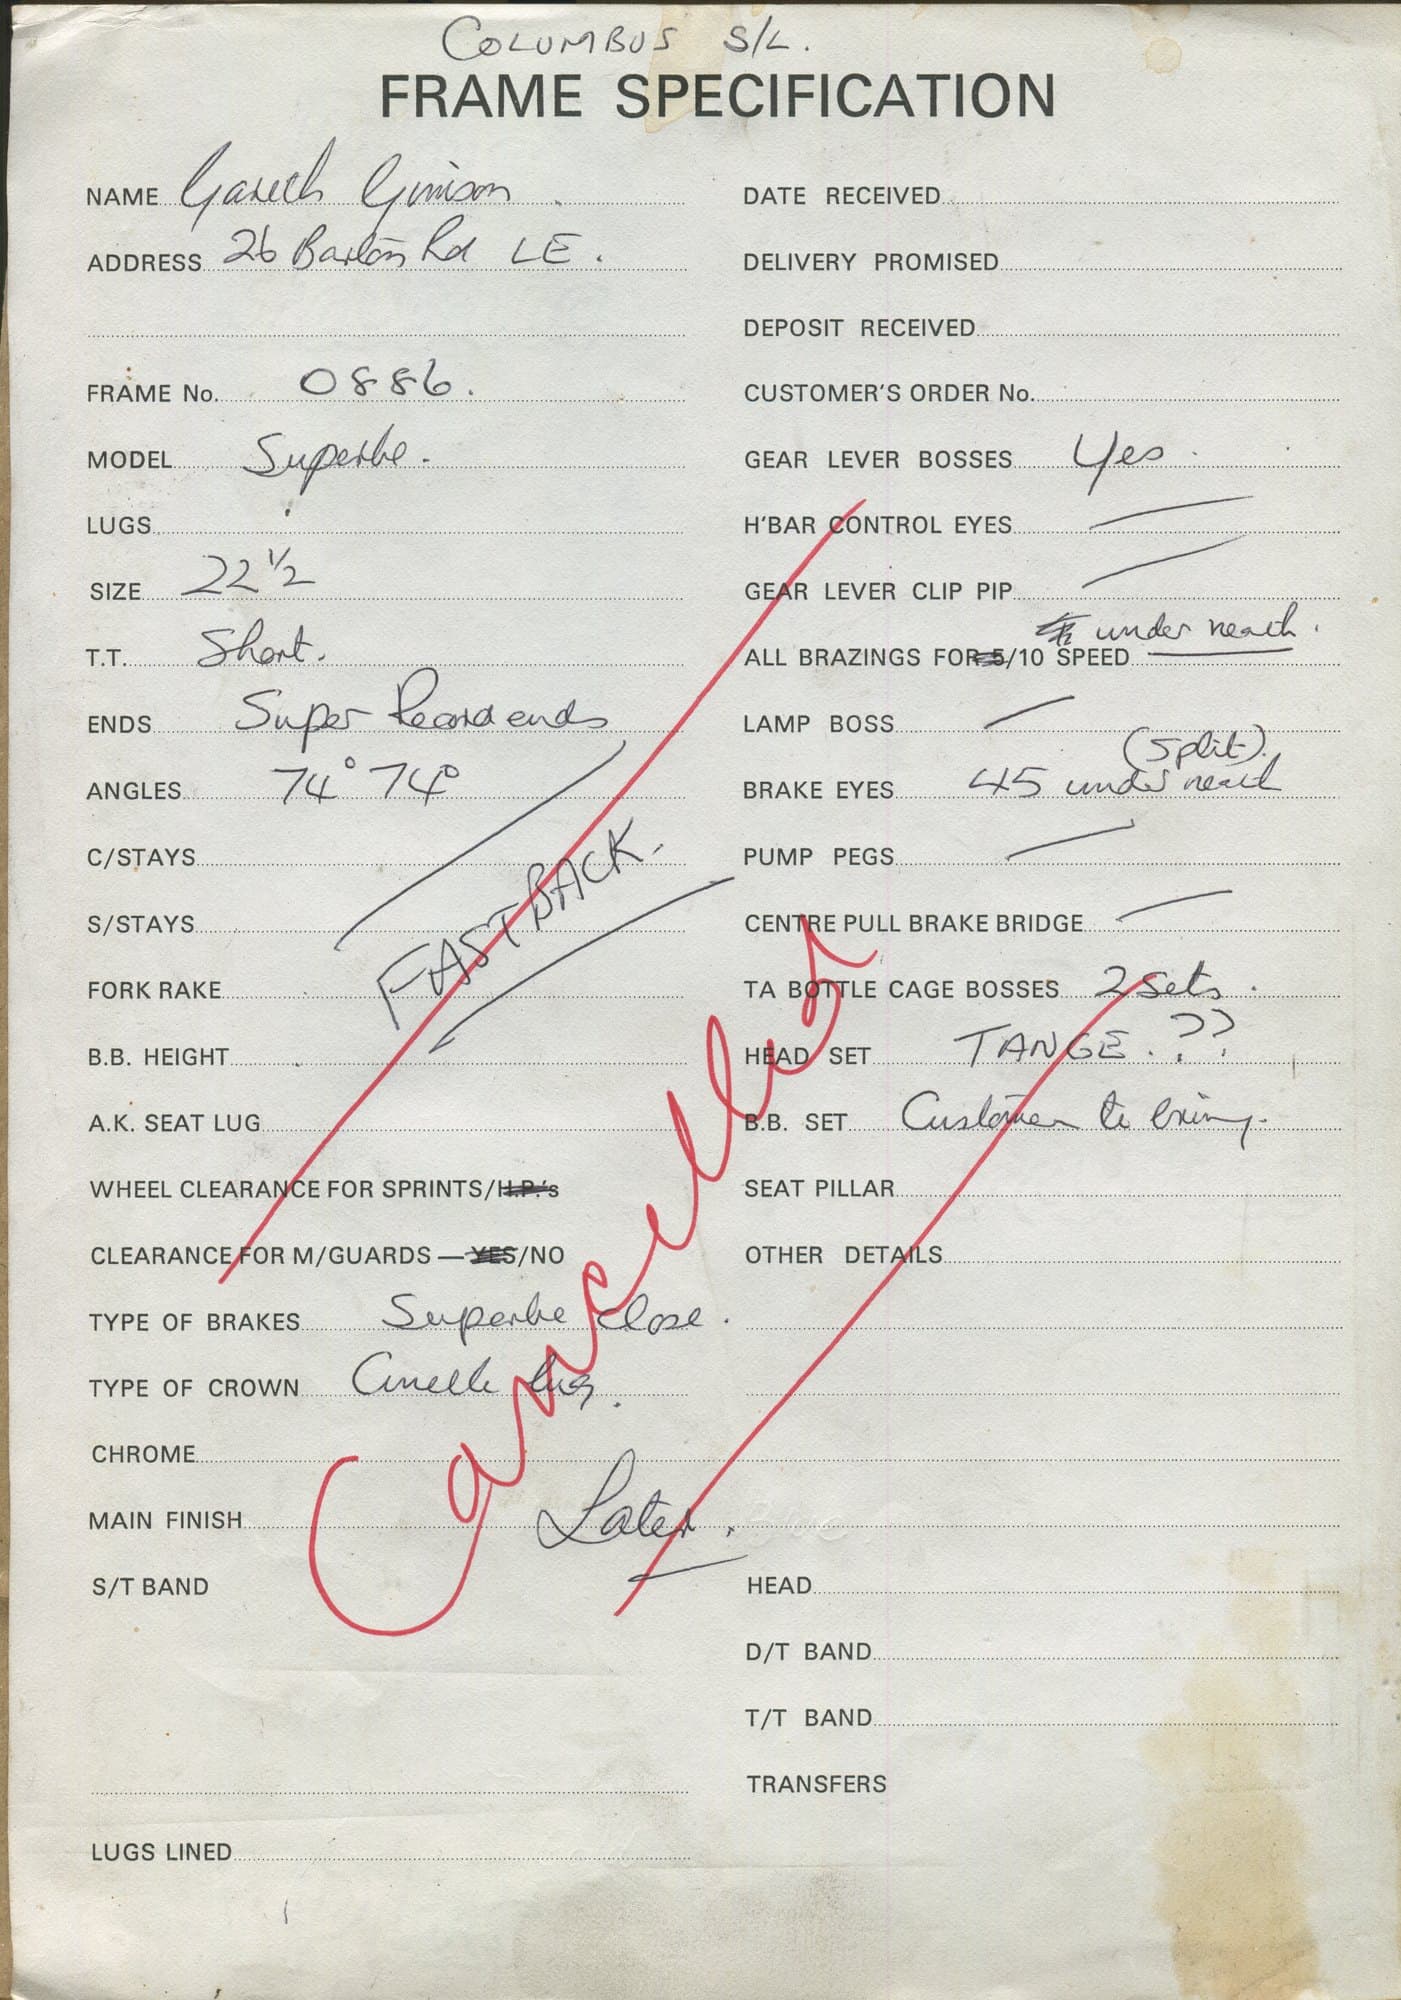 COLUMBUS S/L.
FRAME SPECIFICATION
NAME Gareth
ADDRESS 26 Barton Rd LE.
FRAME No. 0886.
MODEL Superbe.
LUGS
SIZE 22 1/2
T.T. Short.
ENDS Super Record ends
ANGLES 74° 74°
C/STAYS
S/STAYS
FASTBACK.
FORK RAKE
B.B. HEIGHT
A.K. SEAT LUG
WHEEL CLEARANCE FOR SPRINTS/H.P.'s
CLEARANCE FOR M/GUARDS — YES/NO
TYPE OF BRAKES Superbe close.
TYPE OF CROWN Cinelli lug.
CHROME
MAIN FINISH Later.
S/T BAND
LUGS LINED
DATE RECEIVED
DELIVERY PROMISED
DEPOSIT RECEIVED
CUSTOMER'S ORDER No.
GEAR LEVER BOSSES Yes.
H'BAR CONTROL EYES
GEAR LEVER CLIP PIP
under neath.
ALL BRAZINGS FOR 5/10 SPEED
LAMP BOSS
(split).
BRAKE EYES 45 under neath
PUMP PEGS
CENTRE PULL BRAKE BRIDGE
TA BOTTLE CAGE BOSSES 2 sets.
HEAD SET TANGE. ??
B.B. SET Customer to bring.
SEAT PILLAR
OTHER DETAILS
HEAD
D/T BAND
T/T BAND
TRANSFERS
Cancelled